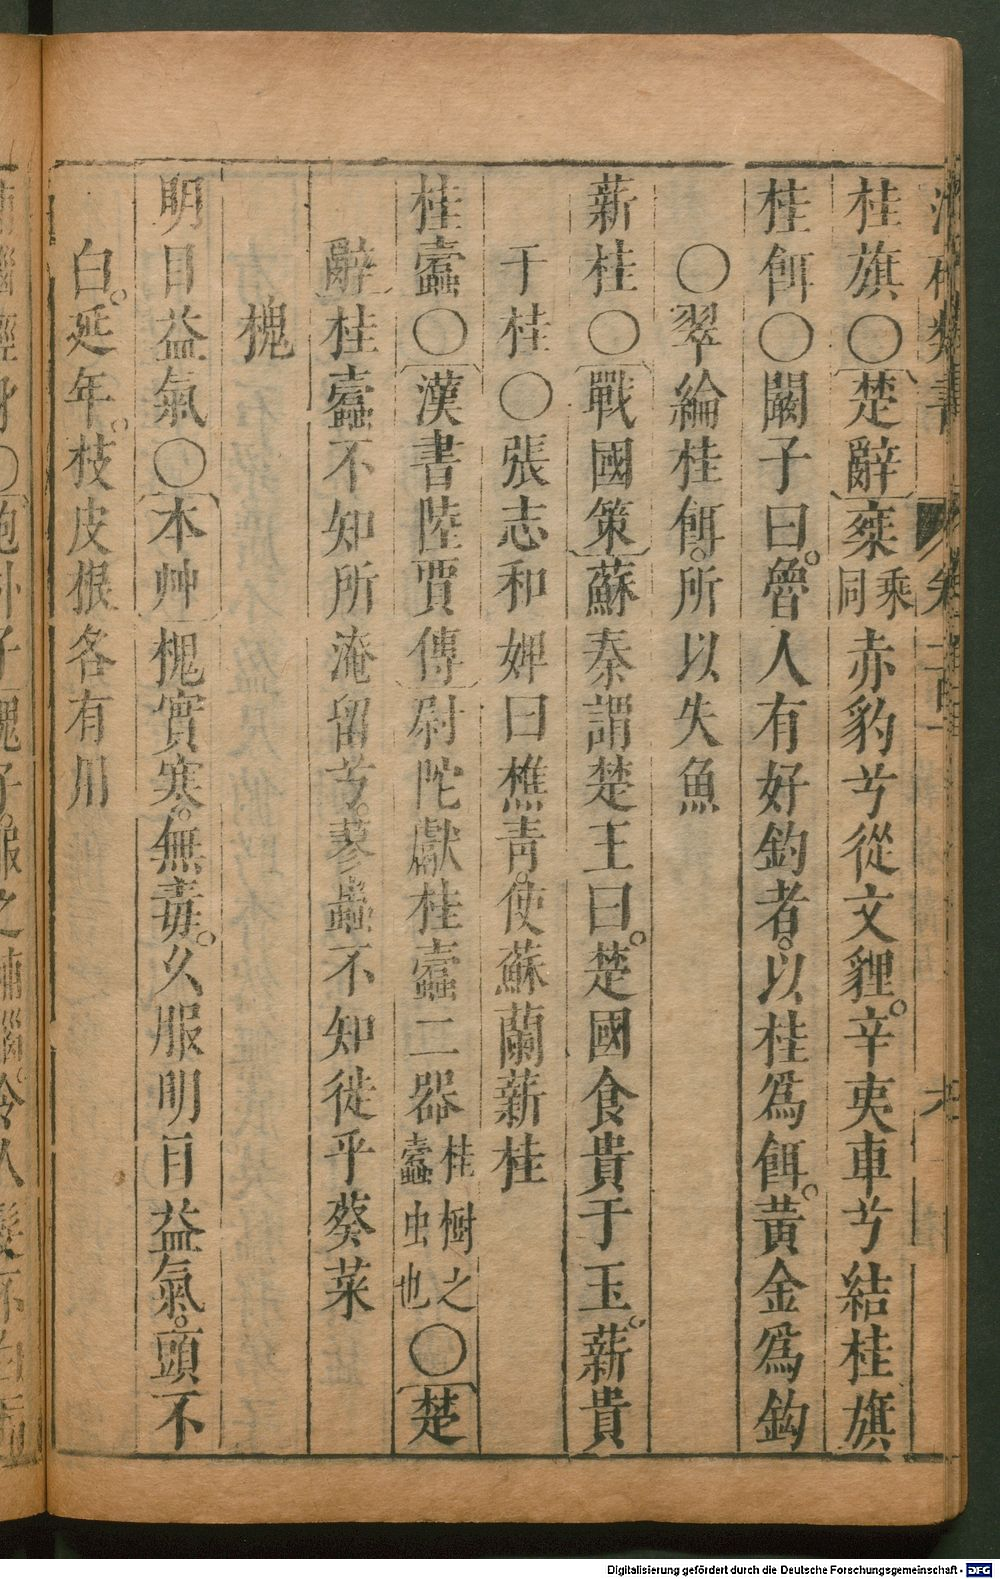 卷二百一 六
桂旗〇楚辭椉乘同赤豹兮從文貍。辛夷車兮結桂旗
桂餌〇闞子曰。魯人有好釣者。以桂爲餌。黃金爲鈎
〇翠綸桂餌。所以失魚
薪桂〇戰國策蘇秦謂楚王曰。楚國食貴于玉。薪貴
于桂〇張志和婢曰樵青。使蘇蘭薪桂
桂蠧〇漢書陸賈傳尉陀獻桂蠧二器桂樹之蠧虫也〇楚
辭桂蠧不知所淹留兮。蓼蟲不知徙乎葵菜
槐
明目益氣〇本艸槐實寒。無毒。久服明目益氣。頭不
白。延年。枝皮根各有用